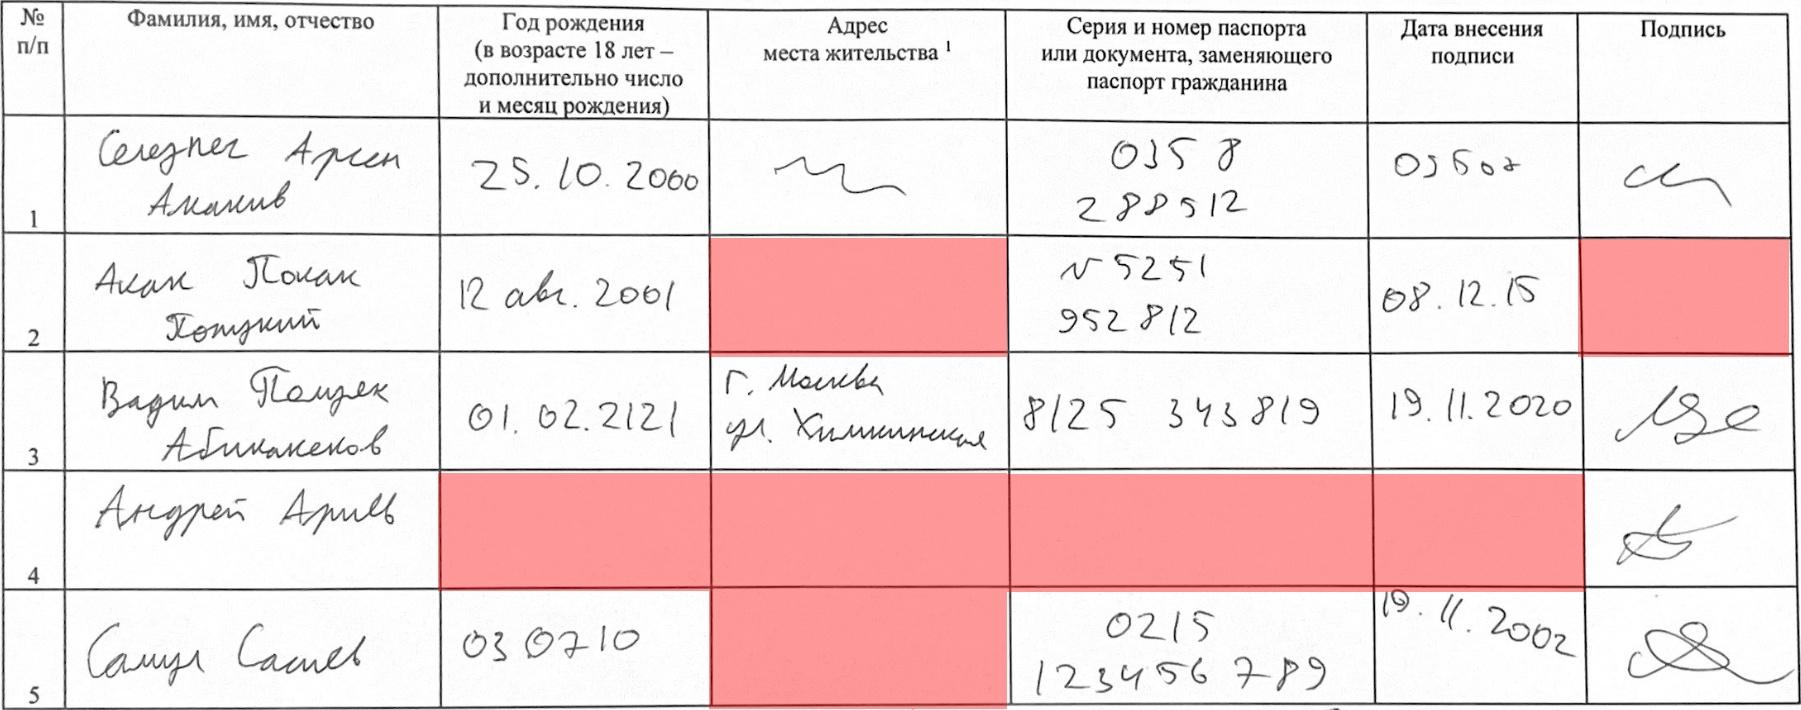 № п/п
Фамилия, имя, отчество
Год рождения
(в возрасте 18 лет –
дополнительно число
и месяц рождения)
Адрес
места жительства ¹
Серия и номер паспорта
или документа, заменяющего
паспорт гражданина
Дата внесения
подписи
Подпись
1
Арсен
25.10.2000
0358
288512
2
Акак Покак
12 авг. 2001
5251
952812
08.12.15
3
Вадим
01.02.2121
г. Москва
ул. Химкинская
8125 343819
19.11.2020
4
Андрей
5
030710
0215
123456789
19.11.2002